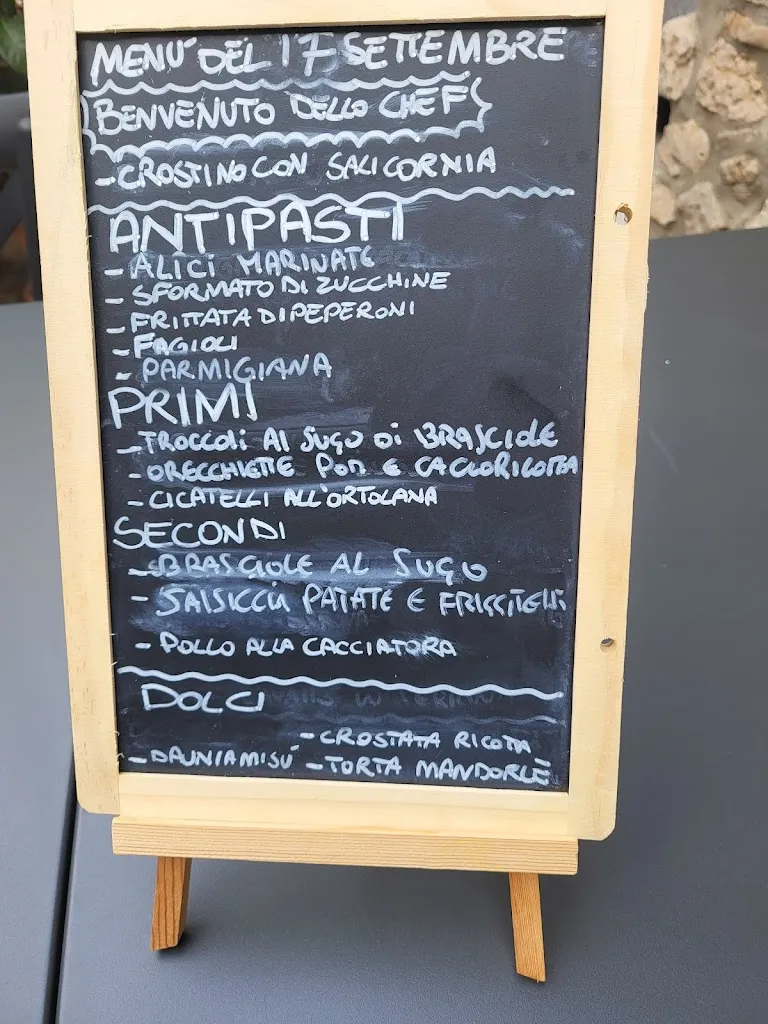 MENU' DEL 17 SETTEMBRE
BENVENUTO DELLO CHEF
- CROSTINO CON SALICORNIA
ANTIPASTI
- ALICI MARINATE
- SFORMATO DI ZUCCHINE
- FRITTATA DI PEPERONI
- FAGIOLI
- PARMIGIANA
PRIMI
- TROCCOLI AL SUGO DI BRASCIOLE
- ORECCHIETTE POM E CACIORICOTTA
- CICATELLI ALL'ORTOLANA
SECONDI
- BRASCIOLE AL SUGO
- SALSICCIA PATATE E FRIGGITELLI
- POLLO ALLA CACCIATORA
DOLCI
- CROSTATA RICOTTA
- DAUNIAMISU' - TORTA MANDORLE